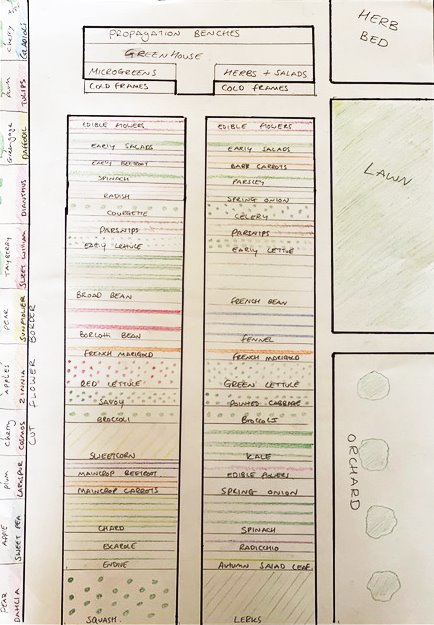 PROPAGATION BENCHES
GREENHOUSE
MICROGREENS
HERBS + SALADS
COLD FRAMES
COLD FRAMES
HERB
BED
LAWN
ORCHARD
EDIBLE FLOWERS
EARLY SALADS
EARLY BEETROOT
SPINACH
RADISH
COURGETTE
PARSNIPS
EARLY LETTUCE
BROAD BEAN
BORLOTTI BEAN
FRENCH MARIGOLD
RED LETTUCE
SAVOY
BROCCOLI
SWEETCORN
MAINCROP BEETROOT
MAINCROP CARROTS
CHARD
ESCAROLE
ENDIVE
SQUASH
EDIBLE FLOWERS
EARLY SALADS
BABY CARROTS
PARSLEY
SPRING ONION
CELERY
PARSNIPS
EARLY LETTUCE
FRENCH BEAN
FENNEL
FRENCH MARIGOLD
GREEN LETTUCE
POINTED CABBAGE
BROCCOLI
KALE
EDIBLE FLOWERS
SPRING ONION
SPINACH
RADICCHIO
AUTUMN SALAD LEAF
LEEKS
CUT FLOWER BORDER
DAHLIA
SWEET PEA
LARKSPUR
COSMOS
ZINNIA
SUNFLOWER
SWEET WILLIAM
DIANTHUS
DAFFODIL
TULIPS
GLADIOLI
PEAR
APPLE
plum
cherry
APPLES
PEAR
TAYBERRY
Greengage
plum
cherry